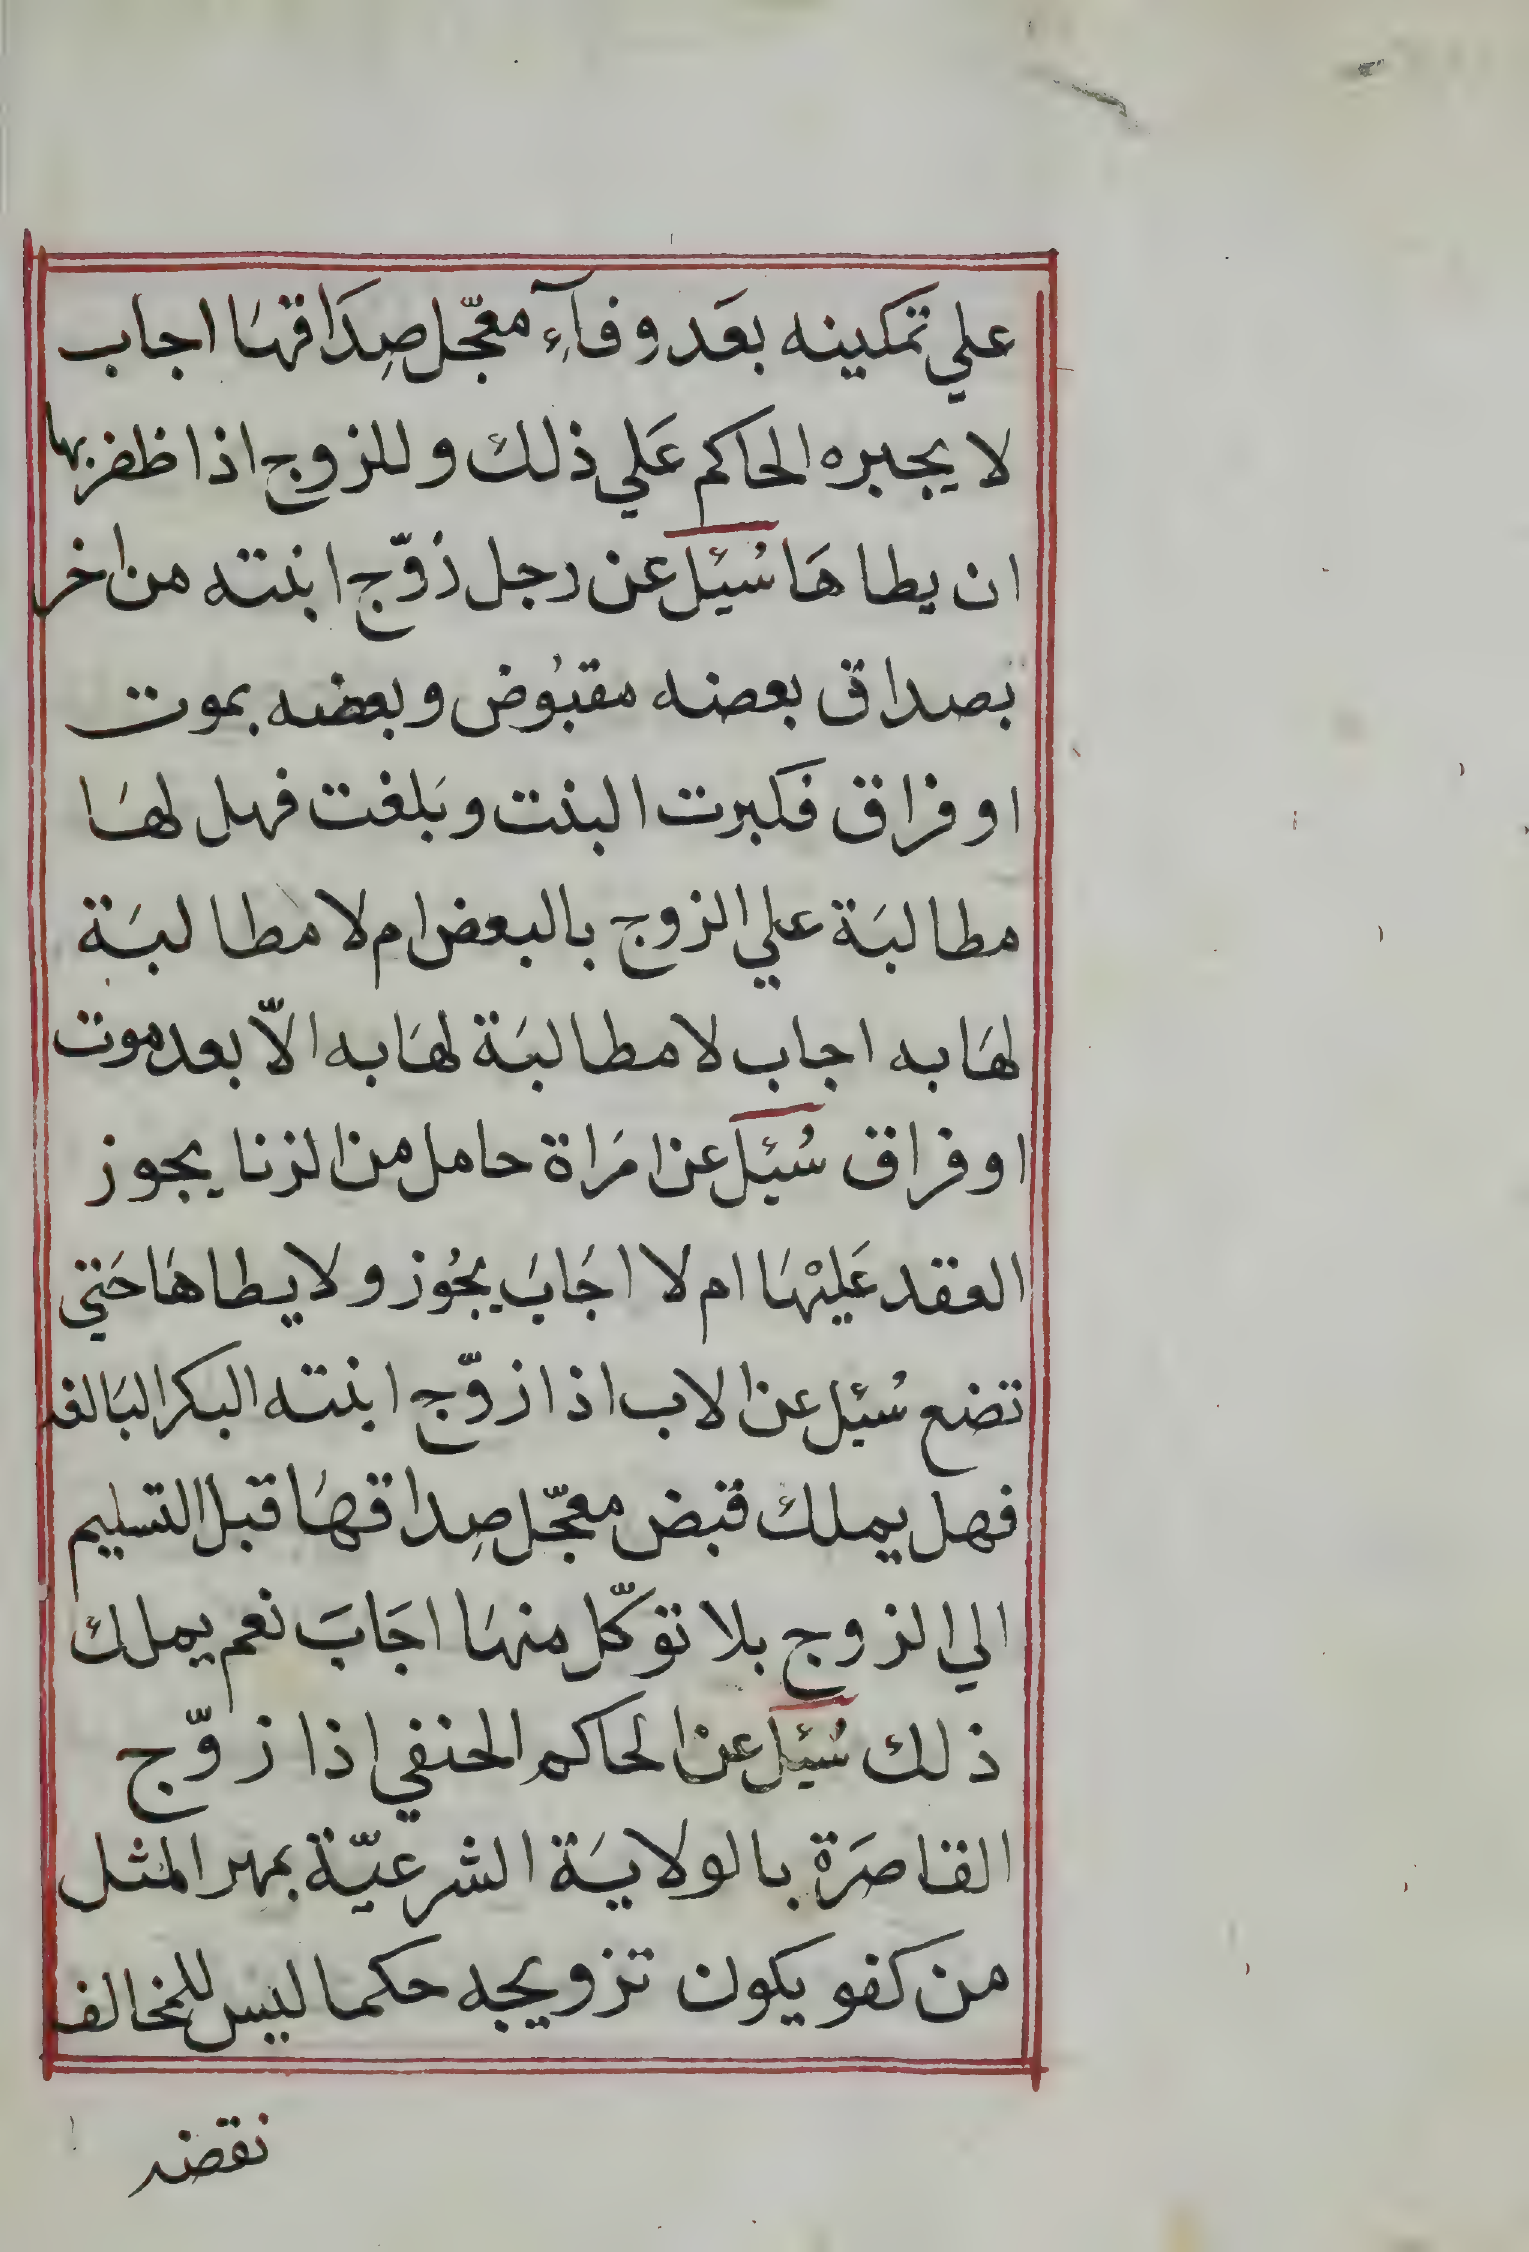 علي تمكينه بعَد وِفآءِ معجّل صِدَاقهَا اجاب
لا يجبره الحاكم عَلي ذلك وللزوج اذا ظفر بها
ان يطاهَا سُئِل عن رجل زوّج ابنته من اخر
بصداق بعضه مقبُوض وبعضه بموت
او فراق فكبرت البنت وبَلغت فهل لهَا
مطالبَة علي الزوج بالبعض ام لا مطالبَة
لهَا به اجاب لا مطالبَة لهَا به الاّ بعد موت
او فراق سُئل عن امَراة حامل من الزنا يجوز
العقد عَليْهَا ام لا اجَابَ يجُوز ولا يطاهَا حَتي
تضع سُئِل عن الاب اذا زوّج ابنته البكر البَالغه
فهل يملك قبض معجّل صِداقهَا قبل التسليم
الي الزوج بلا توكّل منهَا اجَابَ نعم يملك
ذلك سُئِل عن الحاكم الحنفي اذا زوّج
القاصَرة بالولايَة الشرعيّة بمهر المثل
من كفو يكون تزويجه حكما ليس للمخالف
نقضه